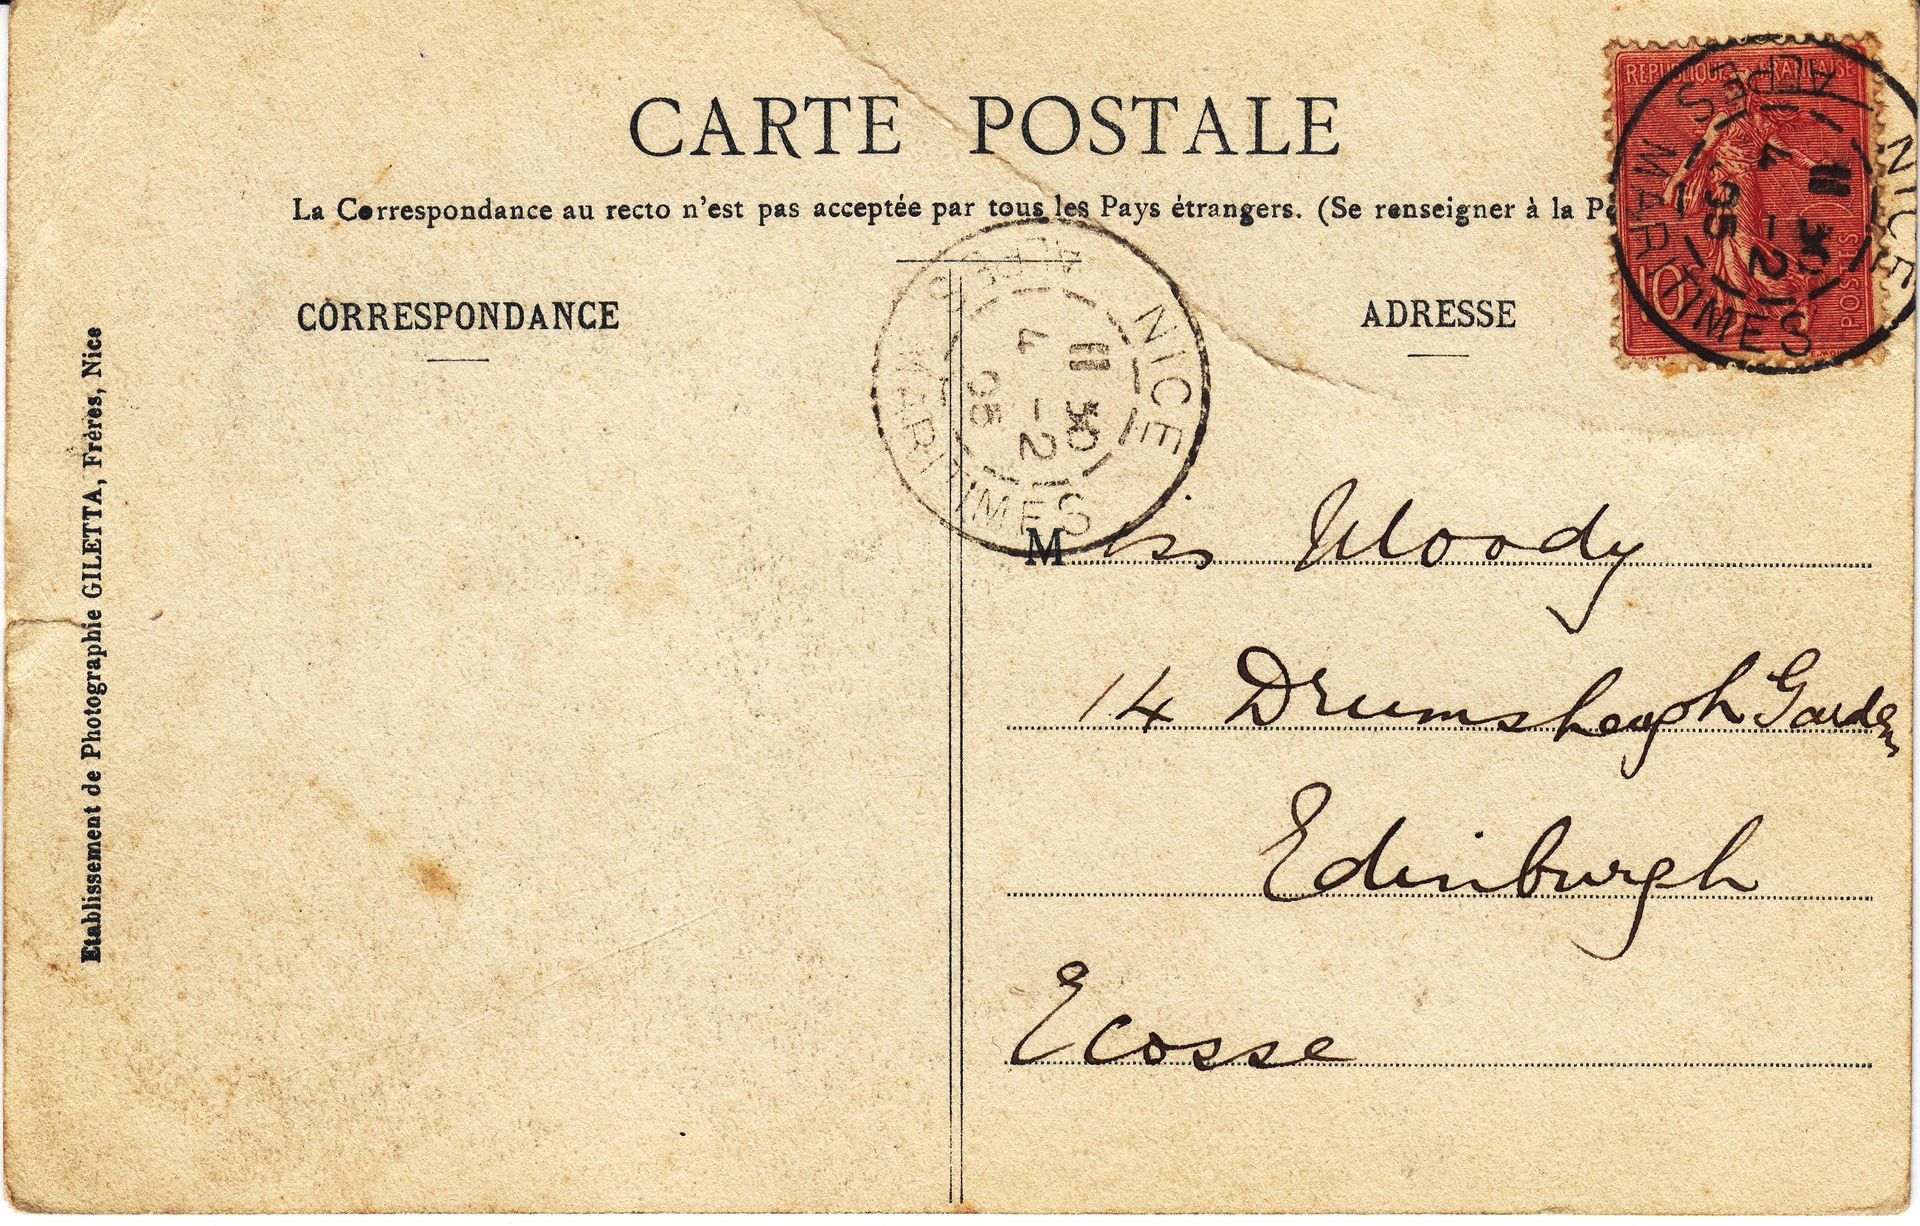 CARTE POSTALE
La Correspondance au recto n'est pas acceptée par tous les Pays étrangers. (Se renseigner à la
CORRESPONDANCE
ADRESSE
REPUBLIQUE FRANÇAISE
10
POSTES
NICE
ALPES MARITIMES
11 30
4 -2
05
NICE
ALPES MARITIMES
11 30
4 -2
05
Miss Moody
14 Drumsheugh Gardens
Edinburgh
Ecosse
Etablissement de Photographie GILETTA, Frères, Nice